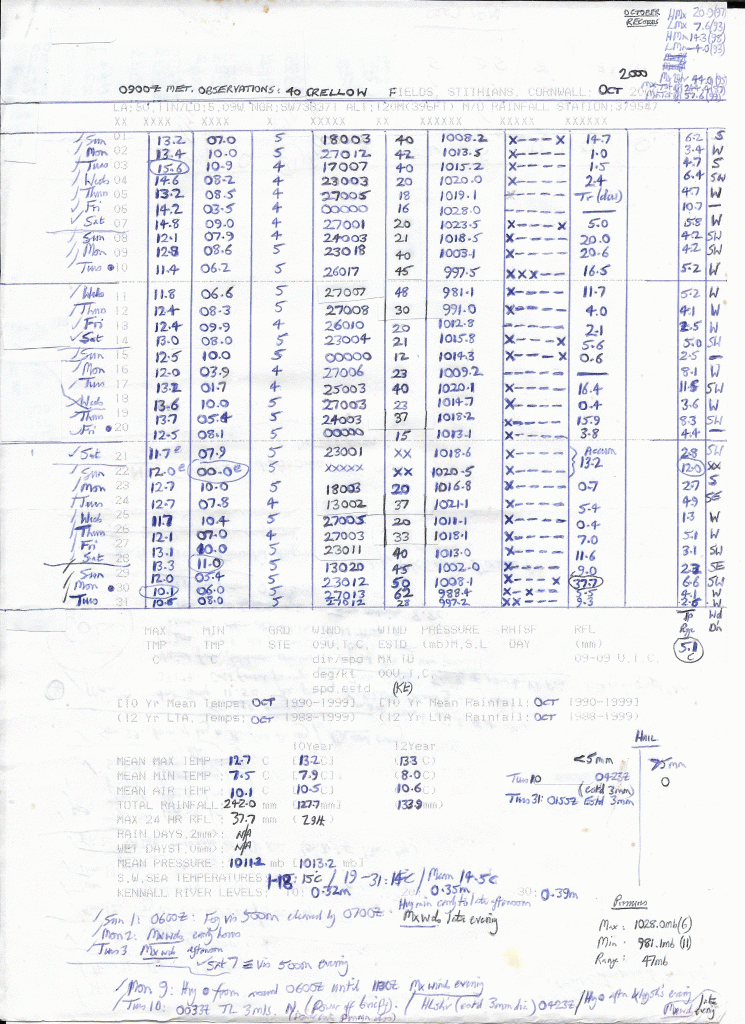 OCTOBER RECORDS
HMx 20.9(97)
LMx 7.6(93)
HMn 14.3(95)
LMn -4.0(93)
2000
0900Z MET. OBSERVATIONS: 40 CRELLOW FIELDS, STITHIANS, CORNWALL: OCT
XX XXXX XXXX X XXXXX XX XXXXXX XXXXX XXXX
Sun 01 13.2 07.0 5 18003 40 1008.2 X---X 14.7 6.2 S
Mon 02 13.4 10.0 5 27012 42 1013.5 X---- 1.0 3.4 W
Tues 03 15.6 10.9 4 17007 40 1015.2 X---- 1.5 4.7 S
Weds 04 14.6 08.2 4 23003 20 1020.0 X---- 2.4 6.4 SW
Thurs 05 13.2 08.5 4 27005 18 1019.1 ----- Tr (dew) 4.7 W
Fri 06 14.2 03.5 4 00000 16 1028.0 ----- — 10.7 —
Sat 07 14.8 09.0 4 27001 20 1023.5 X---X 5.0 5.8 W
Sun 08 12.1 07.9 4 24003 21 1018.5 X---- 20.0 4.2 SW
Mon 09 12.8 08.6 5 23018 40 1003.1 X---- 20.6 4.2 SW
Tues 10 11.4 06.2 5 26017 45 997.5 XXX-- 16.5 5.2 W
Weds 11 11.8 06.6 5 27007 48 981.1 X---- 11.7 5.2 W
Thurs 12 12.4 08.3 5 27008 30 991.0 X---- 4.0 4.1 W
Fri 13 12.4 09.9 4 26010 20 1012.8 ----- 2.1 2.5 W
Sat 14 13.0 08.0 5 23004 21 1015.8 X---X 5.6 5.0 SW
Sun 15 12.5 10.0 5 00000 12 1014.3 X---X 0.6 2.5 —
Mon 16 12.0 03.9 4 27006 23 1009.2 ----- — 8.1 W
Tues 17 13.2 01.7 4 25003 40 1020.1 X---- 16.4 11.5 SW
Weds 18 13.6 10.0 5 27003 23 1014.7 X---- 0.4 3.6 W
Thurs 19 13.7 05.4 5 24003 37 1018.2 X---- 15.9 8.3 SW
Fri 20 12.5 08.1 5 00000 15 1013.1 X---- 3.8 4.4 —
Sat 21 11.7e 07.9 5 23001 XX 1018.6 X---- Accum 2.8 SW
Sun 22 12.0e 00.0e 5 XXXXX XX 1020.5 X---- 13.2 12.0 XX
Mon 23 12.7 10.0 5 18003 20 1016.8 X---- 0.7 2.7 S
Tues 24 12.7 07.8 4 13002 37 1021.1 X---- 5.4 4.9 SE
Weds 25 11.7 10.4 5 27005 20 1011.1 X---- 0.4 1.3 W
Thurs 26 12.1 07.0 5 27003 33 1018.1 X---- 7.0 5.1 W
Fri 27 13.1 10.0 5 23011 40 1013.0 X---- 11.6 3.1 SW
Sat 28 13.3 11.0 5 13020 45 1002.0 X---- 9.0 2.3 SE
Sun 29 12.0 05.4 5 23012 50 1008.1 X---X 37.7 6.6 SW
Mon 30 10.1 06.0 5 27013 62 988.4 X---X 4.1 W
Tues 31 10.6 08.0 5 27012 28 997.2 XX--- 9.3 2.6 W
MAX MIN GRD WIND WIND PRESSURE RHTSF RFL Tp Wd
TMP TMP STE 09U.T.C. ESTD (mb)M.S.L DAY (mm) Rge Dir
C C dir/spd MX TO 09-09 U.T.C. 5.1 C
deg/kt 00U.T.C.
spd.estd (Kt)
[10 Yr Mean Temps: OCT 1990-1999] [10 Yr Mean Rainfall: OCT 1990-1999]
(12 Yr LTA. Temps: OCT 1988-1999) (12 Yr LTA. Rainfall: OCT 1988-1999)
HAIL
10Year 12Year <5mm 5mm
MEAN MAX TEMP : 12.7 C (13.2 C) (13.3 C)
MEAN MIN TEMP : 7.5 C (7.9 C) (8.0 C) Tues 10 0423Z (estd 3mm) 0
MEAN AIR TEMP : 10.1 C (10.5 C) (10.6 C) Tues 31: 0155Z Estd 3mm
TOTAL RAINFALL: 242.0 mm (127.7 mm) (133.9 mm)
MAX 24 HR RFL : 37.7 mm (29th)
RAIN DAYS.2mm>: N/A
WET DAYS1.0mm>: N/A
MEAN PRESSURE : 1011.2 mb [1013.2 mb]
S.W.SEA TEMPERATURES 1-18: 15°C / 19-31: 14°C / Mean 14.5°C
KENNALL RIVER LEVELS: 10: 0.32m 20: 0.35m 30: 0.39m
Sun 1: 0600Z: Fog vis 500m cleared by 0700Z. Hvy rain early to late afternoon Mx wds late evening
Mon 2: Mx wds early hours
Tues 3 Mx wds afternoon
Sat 7 ≡ Vis 500m evening
Pressures
Max: 1028.0mb(6)
Min: 981.1mb (11)
Range: 47mb
Mon 9: Hvy from around 0600Z until 1130Z Mx wind evening
Tues 10: 0033Z TL 3mls. (Power off briefly). / HLshr (estd 3mm dia) 0423Z / Mx wds late evening